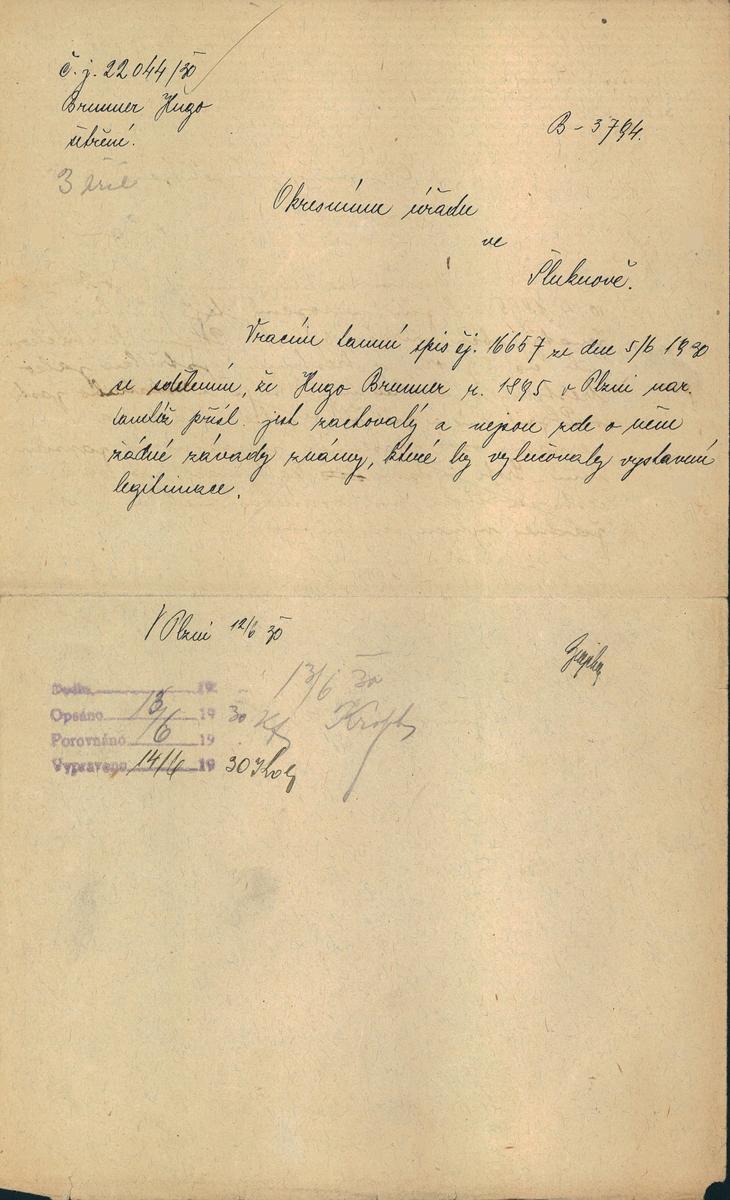 č. j. 22044/30
Brunner Hugo
šetření.
B - 3794.
3 příl
Okresnímu úřadu
ve
Šluknově.
Vracím tamní spis čj. 16657 ze dne 5/6 1930
se sdělením, že Hugo Brunner r. 1895 v Plzni nar.
tamtéž přísl. jest zachovalý a nejsou zde o něm
žádné závady známy, které by vylučovaly vystavení
legitimace.
V Plzni 12/6 30
Došlo 19
13/6 30
Opsáno 13/6 19 30
Porovnáno 19
Vypraveno 14/6 19 30